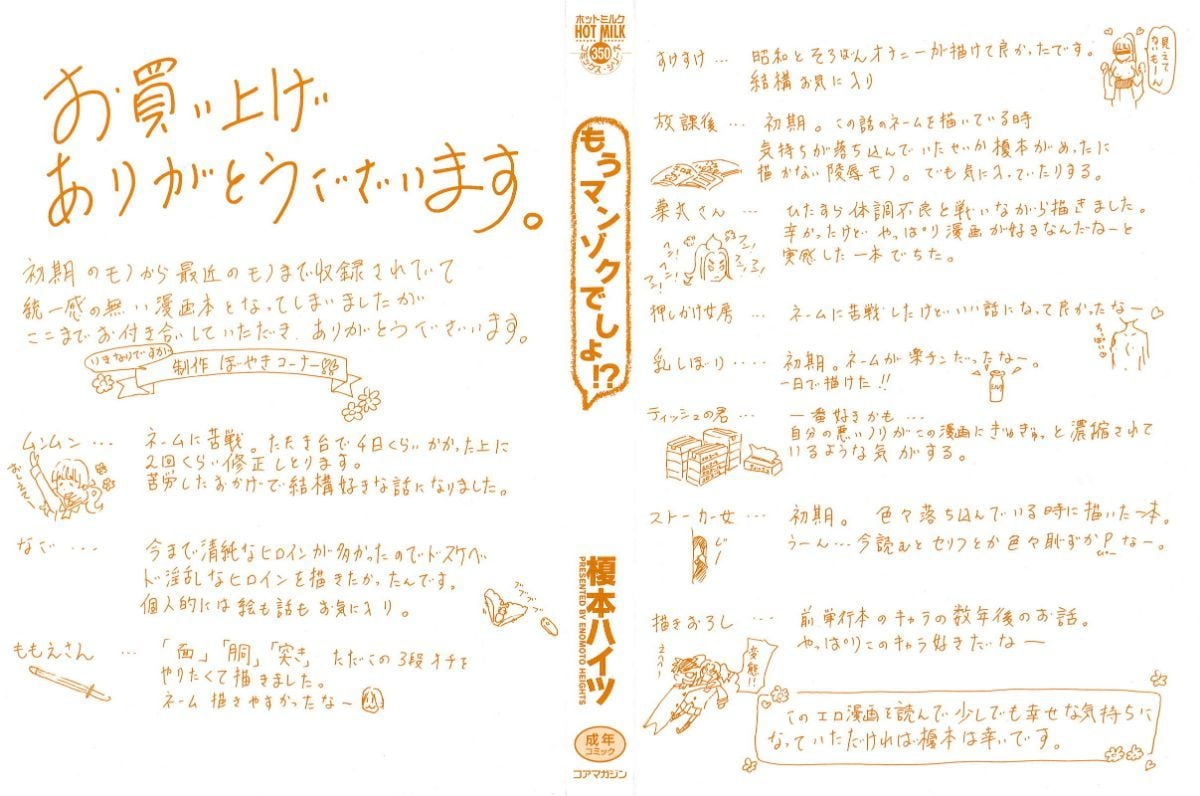 お買い上げ
ありがとうございます。
初期のモノから最近のモノまで収録されていて
統一感の無い漫画本となってしまいましたが
ここまでお付き合いしていただき、ありがとうございます。
いきなりですが
制作 ぼやきコーナー
ムンムン…
ネームに苦戦。たたき台で4日くらいかかった上に
2回くらい修正しとります。
苦労したおかげで結構好きな話になりました。
なで…
今まで清純なヒロインが多かったのでドスケベ
ド淫乱なヒロインを描きたかったんです。
個人的には絵も話もお気に入り。
ブブブブ
ももえさん …
「面」「胴」「突き」ただこの3段オチを
やりたくて描きました。
ネーム描きやすかったなー
ホットミルク
HOT MILK
コミックス・シリーズ
350
もうマンゾクでしょ!?
榎本ハイツ
PRESENTED BY ENOMOTO HEIGHTS
成年
コミック
コアマガジン
すけすけ…
昭和とそろばんオナニーが描けて良かったです。
結構お気に入り
見えて
ないもーん
放課後 …
初期。この話のネームを描いている時
気持ちが落ち込んでいたせいか榎本がめったに
描かない陵辱モノ。でも気に入っていたりする。
薬丸さん …
ひたすら体調不良と戦いながら描きました。
辛かったけど やっぱり漫画が好きなんだなーと
実感した一本でちた。
押しかけ女房 …
ネームに苦戦したけどいい話になって良かったなー
乳しぼり ‥‥
初期。ネームが楽チンだったなー。
一日で描けた!!
ティッシュの君 …
一番好きかも…
自分の悪いノリがこの漫画にぎゅぎゅっと濃縮されて
いるような気がする。
ストーカー女 …
初期。 色々落ち込んでいる時に描いた一本。
うーん…今読むとセリフとか色々恥ずかしいなー。
じー
描きおろし …
前単行本のキャラの数年後のお話。
やっぱりこのキャラ好きだなー
変態!!
このエロ漫画を読んで少しでも幸せな気持ちに
なっていただければ榎本は幸いです。